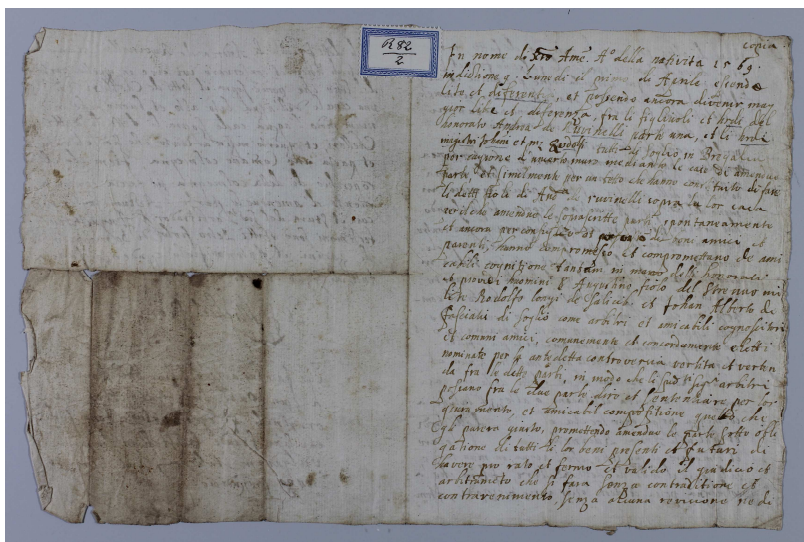 R 82
2
copia
In nome di Xro Amē. A.º della nativita 1569.
indizione 9. Lunedi il primo di Aprile essendo
lite et diferenti, et possendo ancora divenir mag
gior lite et diferenza, fra li figlivoli et hredi del
honorato Andrea de Ruvinelli parte una, et li hredi
ministri Johani et Rodolfi tutti di Soglio, in Bregalia
per cagione d'un certo muro mediante le case di amendue
parte, et similmente per un tetto che hanno cominciato di fare
li detti fioli di And.ª de ruvinelli sopra la lor casa
amendue le soprascritte parti, spontaneamente
et ancora per consiglio di de boni amici et
parenti, hanno compromesso et comprometano de ami
cabili cognitione tantam in mano delli honorati
et providi homini S. Augustino, fiolo del strenuo mi
lite Rodolfo longi de Salicibs et Johan Alberto de
fasciati di Soglio come arbitri et amicabili compositori
et comuni amici, comunemente et concordamente eletti
nominati per le antedetta controversia vertita et verten
da fra le dette parti, in modo che li sud.ti arbitri
possano fra le due parte dire et sentenciare per
et amicabil compositione quello che
gli parera giusto, promettendo amendue le parte sotto obli
gatione di tutti li lor beni presenti et futuri di
havere pro rato et fermo et valido il giudicio et
arbitramēto che si fara senza contraditione et
contravenimento, senza alcuna revisione ne di